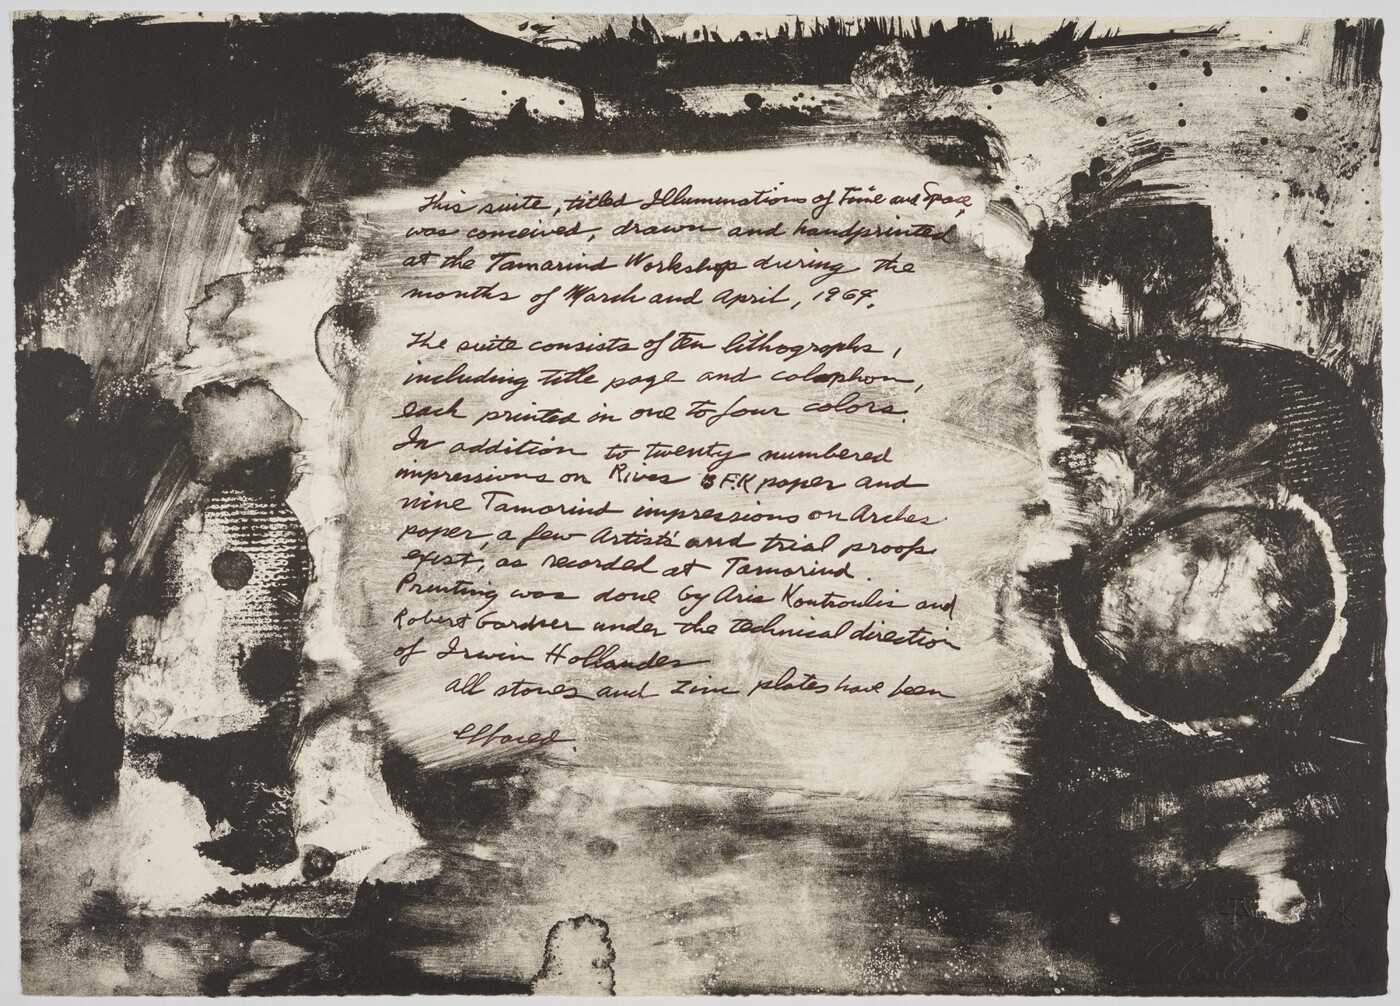 This suite, titled Illuminations of Time and Space,
was conceived, drawn and handprinted
at the Tamarind Workshop during the
months of March and April, 1964.
The suite consists of ten lithographs,
including title page and colophon,
each printed in one to four colors.
In addition to twenty numbered
impressions on Rives BFK paper and
nine Tamarind impressions on Arches
paper, a few Artist's and trial proofs
exist, as recorded at Tamarind.
Printing was done by Aris Koutroulis and
Robert Gardner under the technical direction
of Irwin Hollander
all stones and zinc plates have been
effaced.